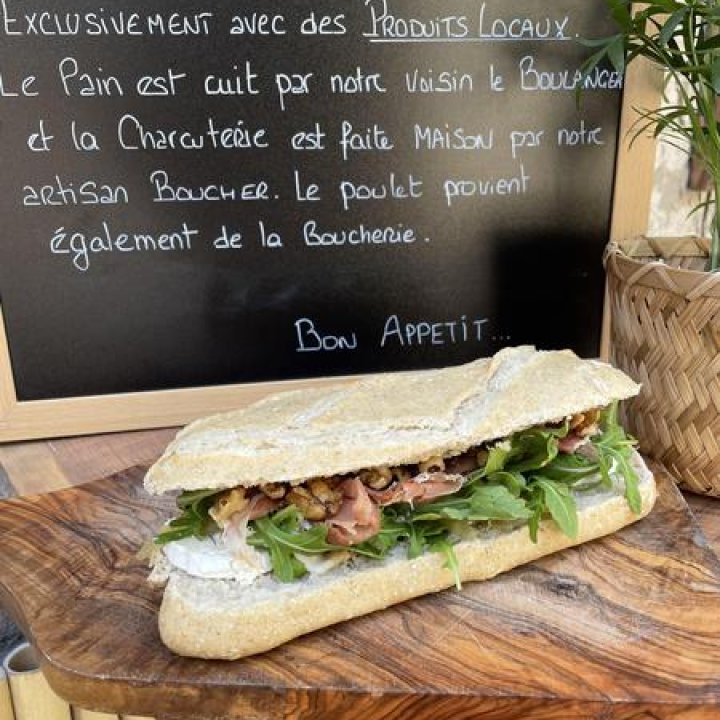 EXCLUSIVEMENT avec des PRODUITS LOCAUX.
Le Pain est cuit par notre voisin le BOULANGER
et la Charcuterie est faite MAISON par notre
artisan BOUCHER. Le poulet provient
également de la Boucherie.
BON APPETIT...